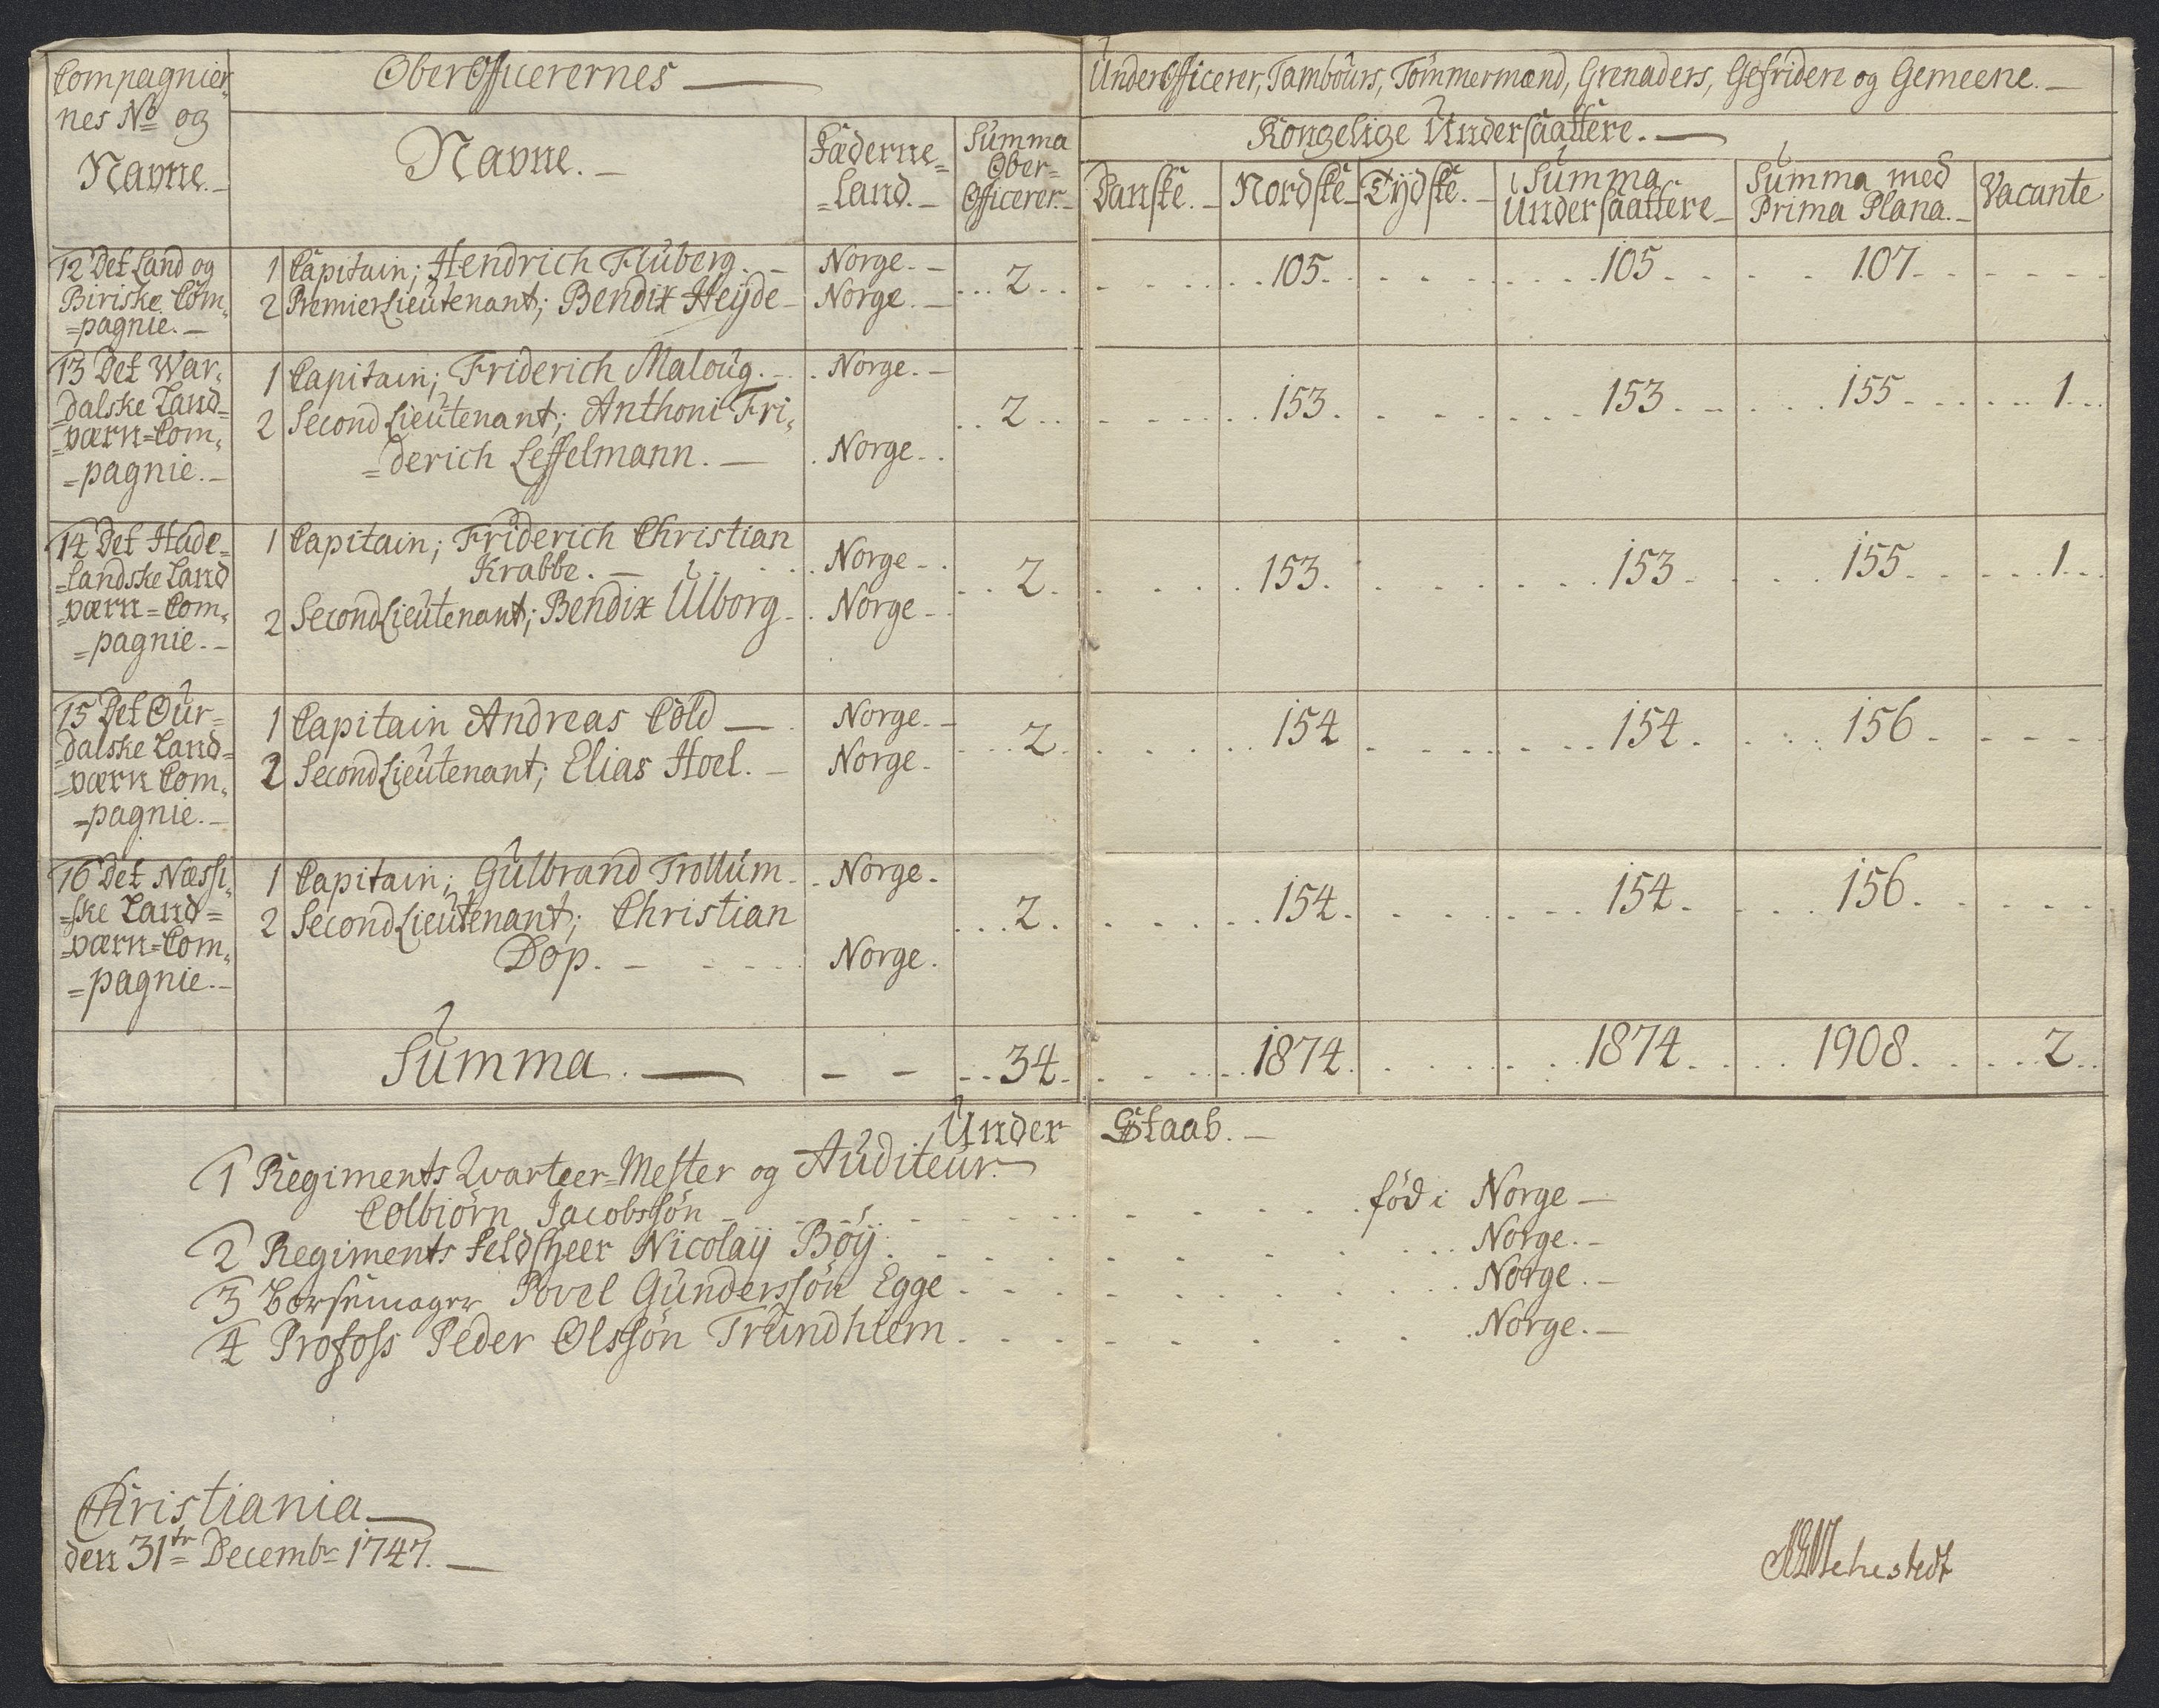 Compagnier,
nes No og
Navne.
OberOfficerernes
Navne.
Fæderne=
=Land.
Summa
Ober=
Officerer.
UnderOfficerer, Tambours, Tömmermænd, Grenaders, Gefridere og Gemeene.
Kongelige Undersaattere.
Danske.
Nordske
Tydske.
Summa
Undersaattere
Summa med
Prima Plana.
Vacante
12 Det Land og
Biriske Com,
=pagnie.
1 Capitain; Hendrich Fluberg. Norge.
2 PremierLieutenant; Bendix Heyde Norge.
2 105 105 107
13 Det War,
dalske Land=
=værn=Com,
=pagnie.
1 Capitain; Friderich Maloug. Norge.
2 SecondLieutenant; Anthoni Fri,
=derich Leffelmann. Norge.
2 153 153 155 1
14 Det Hade=
=landske Land
=værn=Com,
=pagnie.
1 Capitain; Friderich Christian
Krabbe. Norge
2 SecondLieutenant; Bendix Ulborg Norge
2 153 153 155 1
15 Det Our=
dalske Land=
=værn Com,
=pagnie.
1 Capitain Andreas Cold Norge.
2 SecondLieutenant; Elias Hoel. Norge
2 154 154 156
16 Det Næssi,
=ske Land=
=værn=Com,
=pagnie.
1 Capitain; Gulbrand Trollum Norge.
2 SecondLieutenant; Christian
Dop. Norge.
2 154 154 156
Summa. 34 1874 1874 1908 2
Under Staab.
1 Regiments Qvarteer=Mester og Auditeur.
Colbiörn Jacobssön föd i Norge
2 Regiments Feldsheer Nicolaij Böij. Norge.
3 Börsemager Povel Gunderssön Egge Norge.
4 Profoss Peder Olssön Trundhiem Norge.
Christiania
den 31te Decembr 1747.